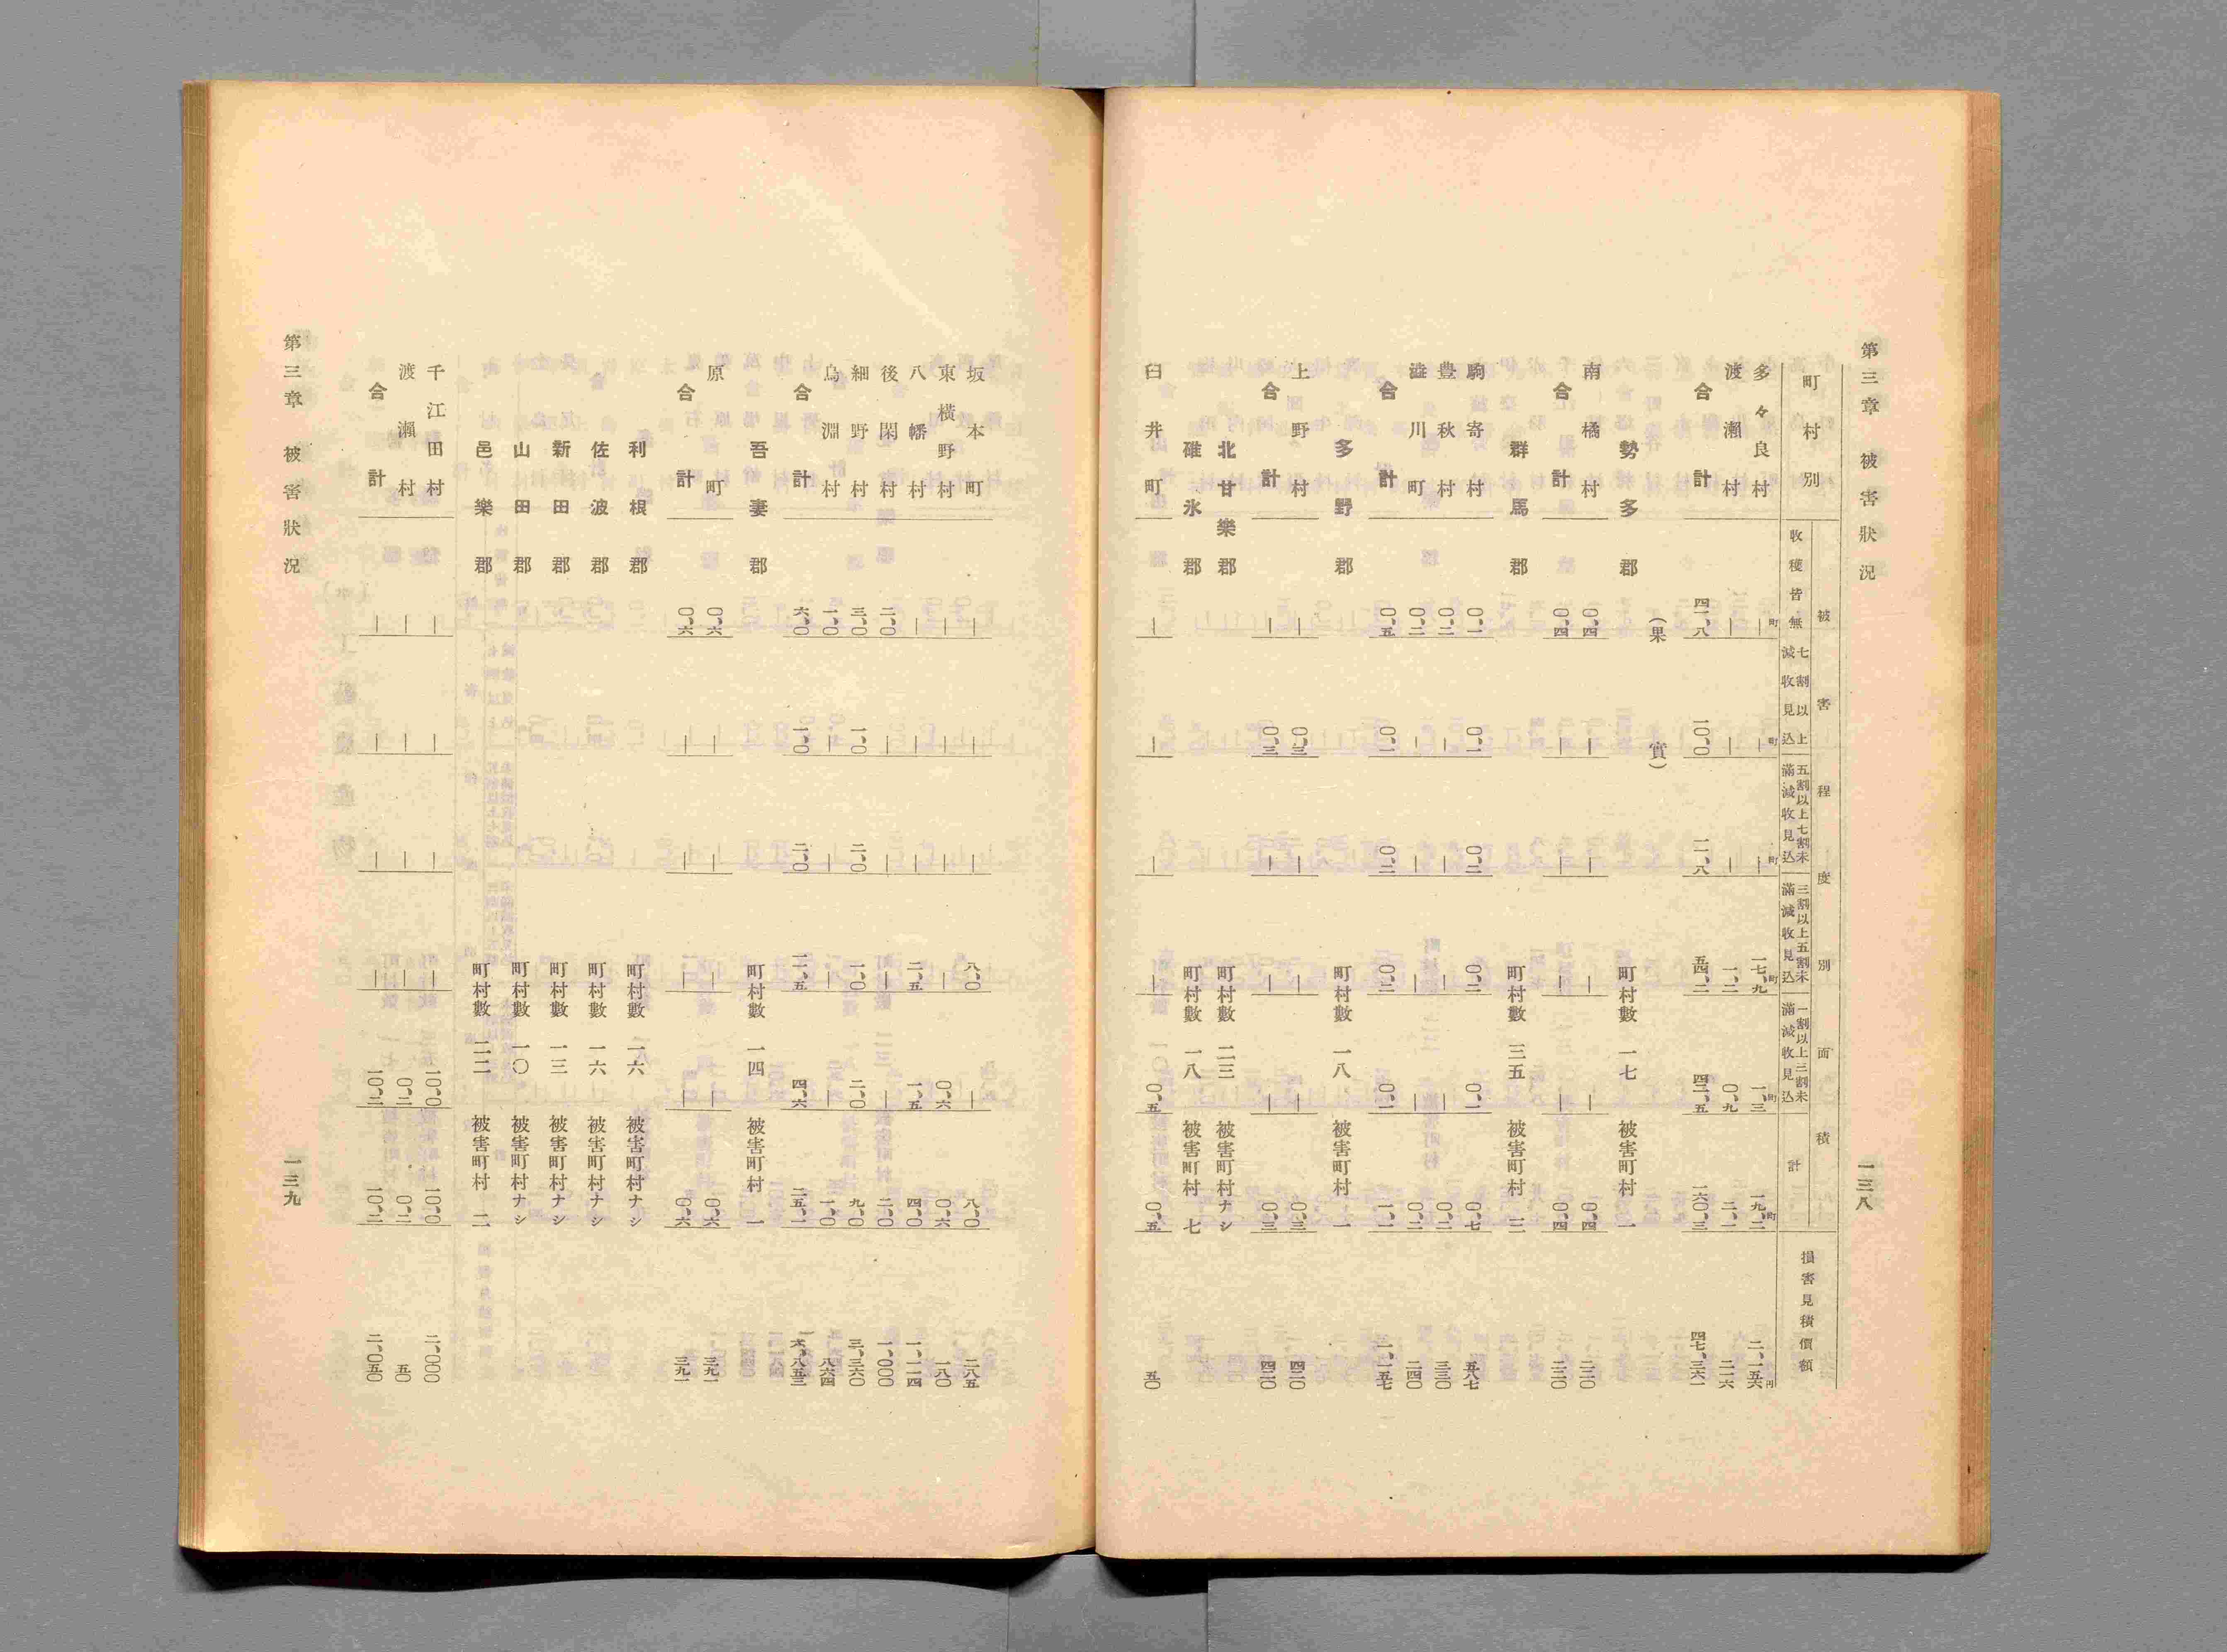 第三章 被害狀況 一三八
町村別
被害程度別面積
收穫皆無
七割以上減收見込
五割以上七割未滿減收見込
三割以上五割未滿減收見込
一割以上三割未滿減收見込
計
損害見積價額
多々良村 町— 町— 町— 町一七、九 町一、三 町一九、二 円二、一五六
渡瀨村 — — — 一、二 〇、九 二、一 二一六
合計 四一、八 一〇、〇 一一、八 五四、二 四二、五 一六〇、三 四七、三六一
(果實)
勢多郡 町村數 一七 被害町村 一
南橘村 〇、四 — — — — 〇、四 二二〇
合計 〇、四 — — — — 〇、四 二二〇
群馬郡 町村數 三五 被害町村 三
駒寄村 〇、一 〇、一 〇、二 〇、二 〇、一 〇、七 五八七
豊秋村 〇、二 — — — — 〇、二 三三〇
澁川町 〇、二 — — — — 〇、二 二四〇
合計 〇、五 〇、一 〇、二 〇、二 〇、一 一、一 一、一五七
多野郡 町村數 一八 被害町村 一
上野村 — 〇、三 — — — 〇、三 四二〇
合計 — 〇、三 — — — 〇、三 四二〇
北甘樂郡 町村數 二三 被害町村ナシ
碓氷郡 町村數 一八 被害町村 七
臼井町 — — — — 〇、五 〇、五 五〇
坂本町 — — — 八、〇 — 八、〇 二八五
東橫野村 — — — — 〇、六 〇、六 一八〇
八幡村 — — — 二、五 一、五 四、〇 一、一一四
後閑村 二、〇 — — — — 二、〇 一、〇〇〇
細野村 三、〇 一、〇 二、〇 一、〇 二、〇 九、〇 三、三六〇
烏淵村 一、〇 — — — — 一、〇 八六四
合計 六、〇 一、〇 二、〇 一一、五 四、六 二五、一 六、八五三
吾妻郡 町村數 一四 被害町村 一
原町 〇、六 — — — — 〇、六 三九一
合計 〇、六 — — — — 〇、六 三九一
利根郡 町村數 一六 被害町村ナシ
佐波郡 町村數 一六 被害町村ナシ
新田郡 町村數 一三 被害町村ナシ
山田郡 町村數 一〇 被害町村ナシ
邑樂郡 町村數 二二 被害町村 二
千江田村 — — — — 一〇、〇 一〇、〇 二、〇〇〇
渡瀨村 — — — — 〇、二 〇、二 五〇
合計 — — — — 一〇、二 一〇、二 二、〇五〇
第三章 被害狀況 一三九